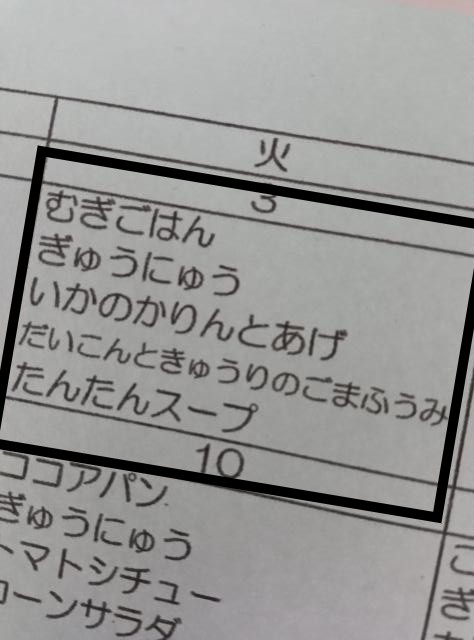 火
3
むぎごはん
ぎゅうにゅう
いかのかりんとあげ
だいこんときゅうりのごまふうみ
たんたんスープ
10
ココアパン
ぎゅうにゅう
トマトシチュー
コーンサラダ